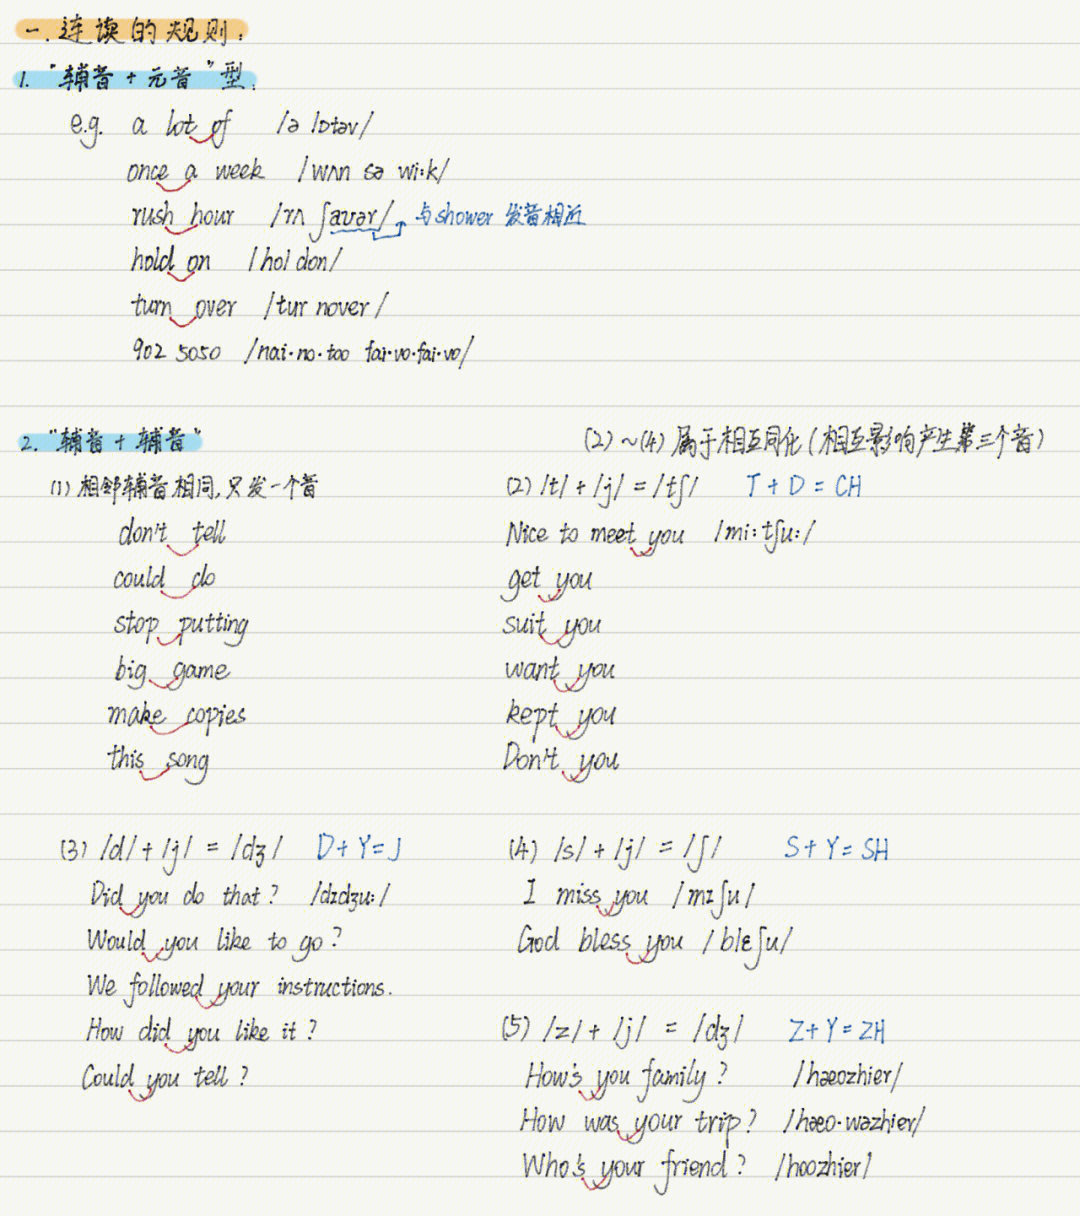 一. 连读的规则:
1. "辅音 + 元音" 型.
e.g. a lot of /ə lɒtəv/
once a week /wʌn sə wi:k/
rush hour /rʌ ʃavər/ 与shower 发音相近
hold on /hol don/
turn over /tur nover/
902 5050 /nai·no·too fai·vo·fai·vo/
2. "辅音 + 辅音"
(2) ~ (4) 属于相互同化 (相互影响产生第三个音)
(1) 相邻辅音相同, 只发一个音
don't tell
could do
stop putting
big game
make copies
this song
(2) /t/ + /j/ = /tʃ/ T + D = CH
Nice to meet you /mi: tʃu: /
get you
suit you
want you
kept you
Don't you
(3) /d/ + /j/ = /dʒ/ D + Y = J
Did you do that? /dɪdʒu: /
Would you like to go?
We followed your instructions.
How did you like it?
Could you tell?
(4) /s/ + /j/ = /ʃ/ S + Y = SH
I miss you /mɪʃu/
God bless you /blɛʃu/
(5) /z/ + /j/ = /dʒ/ Z + Y = ZH
How's you family? /haeozhier/
How was your trip? /haeo·wazhier/
Who's your friend? /hoozhier/